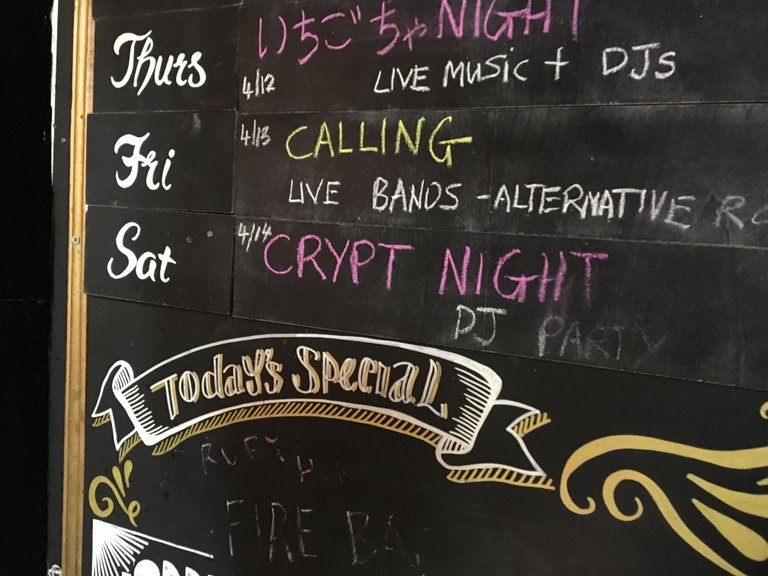 Thurs
いちごちゃNIGHT
4/12
LIVE MUSIC + DJS
Fri
4/13
CALLING
LIVE BANDS - ALTERNATIVE
Sat
4/14
CRYPT NIGHT
DJ PARTY
Today's Special
FIRE